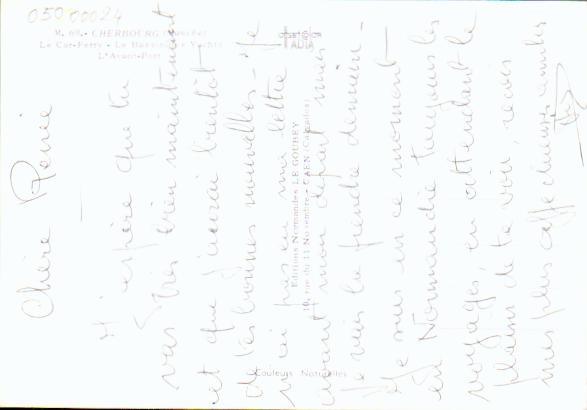 05000024
M. 69. - CHERBOURG (Manche)
Le Car-Ferry - Le Bassin des Yachts
L'Avant-Port
Editions Normandes LE GOUBEY
10, rue du 11 Novembre - CAEN (Calvados)
Couleurs Naturelles
Chère Renée
J'espère que tu
vas très bien maintenant
et que j'aurai bientôt
de tes bonnes nouvelles - Je
n'ai pas eu ma lettre
avant mon départ mais
je vais la prendre demain -
Je suis en ce moment
en Normandie toujours les
voyages, en attendant le
plaisir de te voir, reçois
mes plus affectueuses